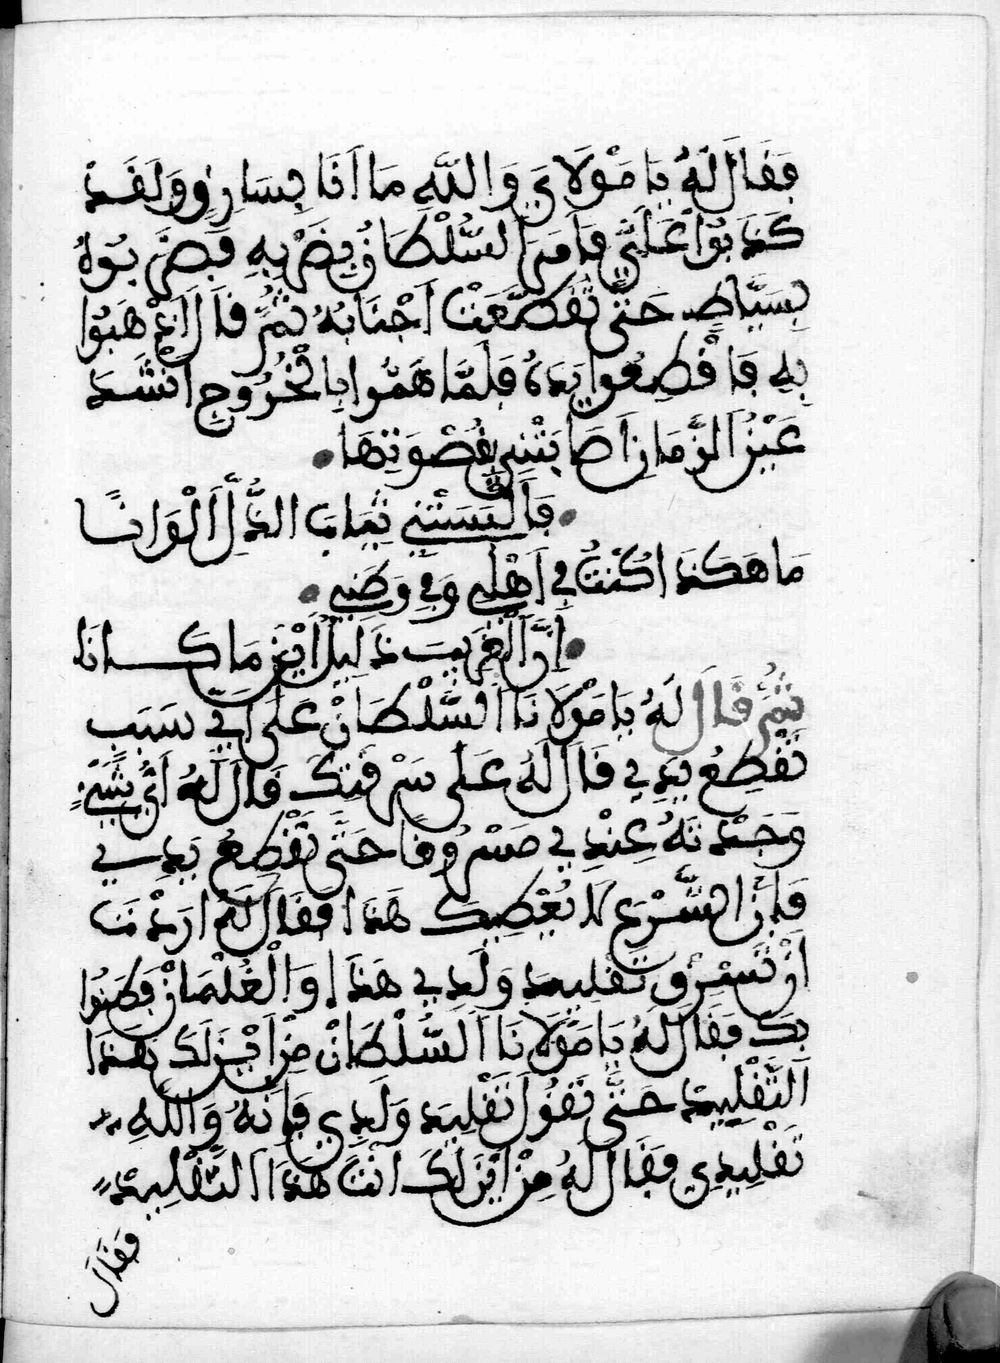 فَفَالَ لَهُ يَا مَوْلَايَ وَاللَّهِ مَا أَنَا بِسَارِقٍ وَلَقَدْ
كَذَبُوا عَلَيَّ فَأَمَرَ السُّلْطَانُ بِضَرْبِهِ فَضَرَبُوهُ
بِسِيَاطٍ حَتَّى تَقَطَّعَتْ أَجْنَابُهُ ثُمَّ قَالَ اذْهَبُوا
بِهِ فَاقْطَعُوا يَدَهُ فَلَمَّا هَمُّوا بِالْخُرُوجِ أَنْشَدَ
عَيْنُ الزَّمَانِ أَصَابَتْنِي بِقُضْوَتِهَا
فَأَلْبَسَتْنِي ثِيَابَ الذُّلِّ أَلْوَانًا
مَا هَكَذَا كُنْتُ فِي أَهْلِي وَفِي وَطَنِي
إِنَّ الْغَرِيبَ ذَلِيلٌ أَيْنَ مَا كَانَا
ثُمَّ قَالَ لَهُ يَا مَوْلَانَا السُّلْطَانْ عَلَى أَيِّ سَبَبٍ
تَقْطَعُ يَدِي قَالَ لَهُ عَلَى سَرْقَتِكَ قَالَ لَهُ أَيُّ شَيْءٍ
وَجَدْتَهُ عِنْدِي مَسْرُوقًا حَتَّى تَقْطَعَ يَدِي
فَإِنَّ الشَّرْعَ لَا يُعْطِيكَ هَذَا فَقَالَ لَهُ أَرَدْتَ
أَنْ تَسْرِقَ تَقْلِيدَ وَلَدِي هَذَا وَالْغُلْمَانْ فَطَنُوا
بِكَ فَقَالَ لَهُ يَا مَوْلَانَا السُّلْطَانْ مِنْ أَيْنَ لَكَ بِهَذَا
التَّقْلِيدِ حَتَّى تَقُولَ تَقْلِيدَ وَلَدِي فَإِنَّهُ وَاللَّهِ
تَقْلِيدِي فَقَالَ لَهُ مِنْ أَيْنَ لَكَ أَنْتَ هَذَا التَّقْلِيدْ
فَقَالَ